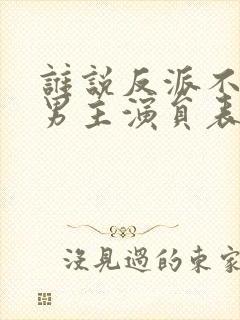 誰說反派不
男主演員表
沒見過的東家